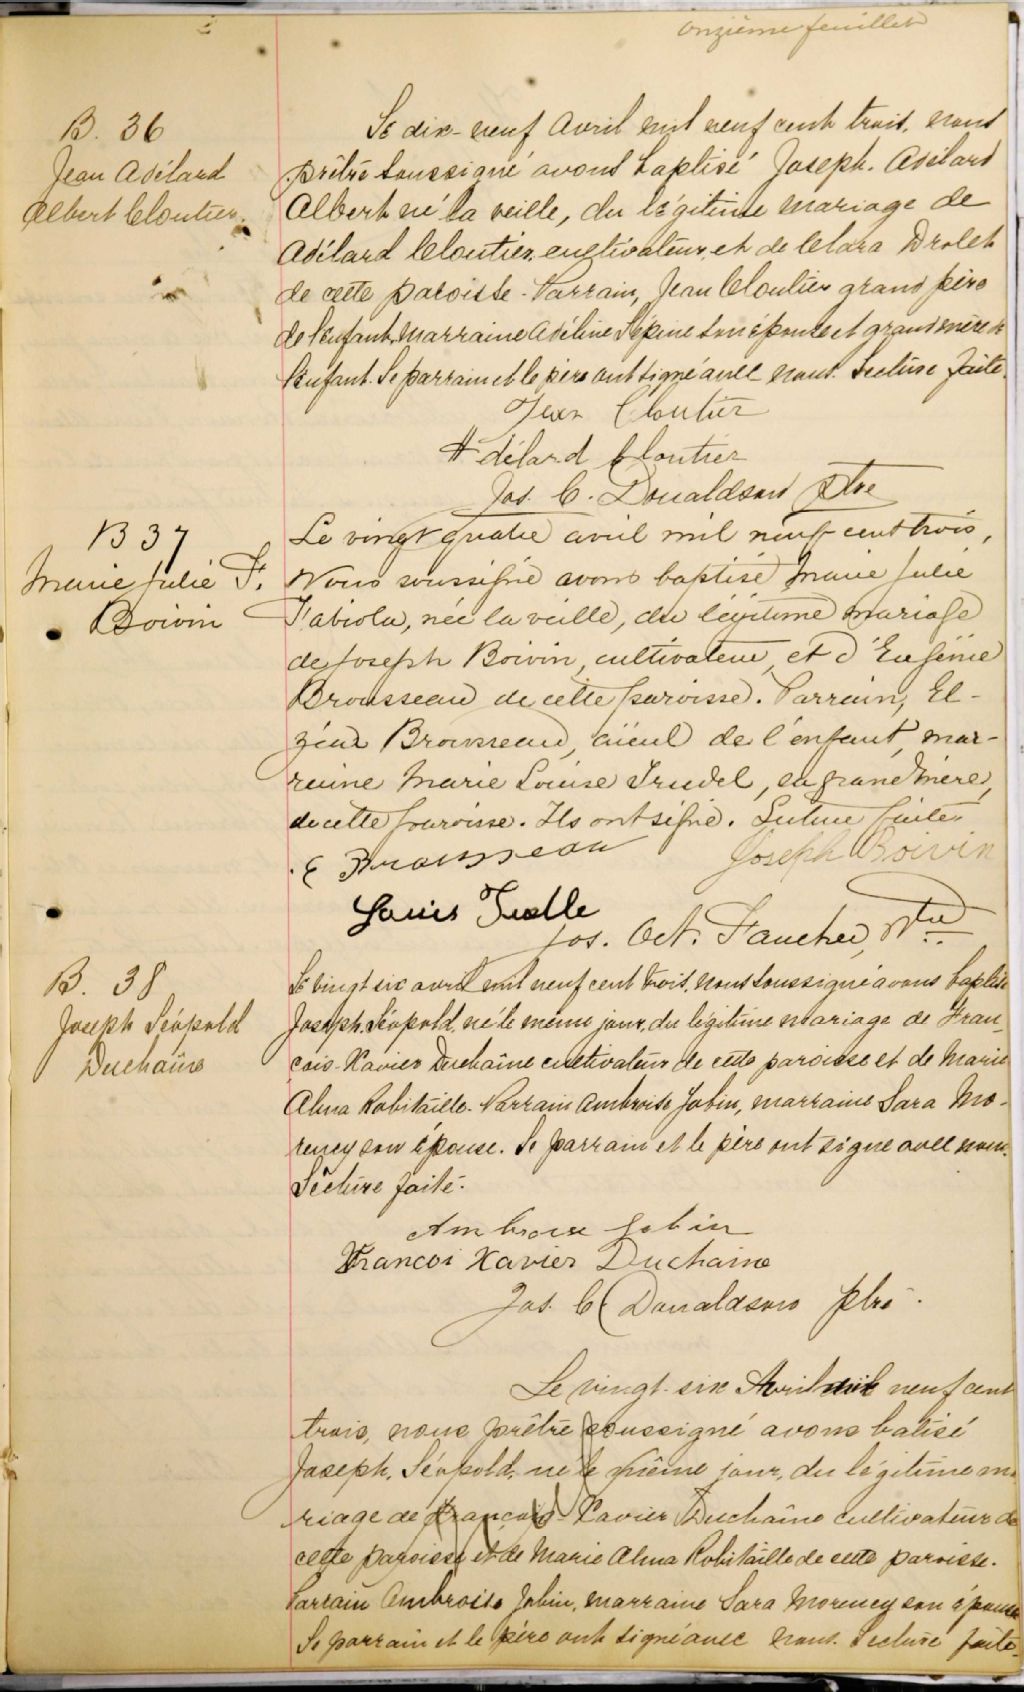 onzième feuillet
B. 36
Jean Adélard
Albert Cloutier.
Le dix-neuf Avril mil neuf cent trois, nous
prêtre soussigné avons baptisé Joseph. Adélard
Albert né la veille, du légitime mariage de
Adélard Cloutier, cultivateur, et de Clara Drolet
de cette paroisse. Parrain, Jean Cloutier grand père
de l'enfant, Marraine Adéline Lépine son épouse et grand mère de
l'enfant. Le parrain et le père ont signé avec nous. Lecture faite.
Jean Cloutier
Adélard Cloutier
Jos. C. Donaldson Ptre
B 37
Marie Julie F.
Boivin
Le vingt quatre avril mil neuf cent trois,
Nous soussigné avons baptisé Marie Julie
Fabiola, née la veille, du légitime mariage
de Joseph Boivin, cultivateur, et d'Eugénie
Brousseau de cette paroisse. Parrain, El-
zéar Brousseau, aïeul de l'enfant, mar-
raine Marie Louise Trudel, sa grand'mère,
de cette paroisse. Ils ont signé. Lecture faite.
E Brousseau
Joseph Boivin
Louis
Jos. Oct. Faucher, Ptre
B. 38
Joseph Léopold
Duchaîne
Le vingt six avril mil neuf cent trois, nous soussigné avons baptisé
Joseph. Léopold, né le même jour, du légitime mariage de Fran-
cois-Xavier Duchaîne cultivateur de cette paroisse et de Marie
Alma Robitaille. Parrain Ambroise Jobin, marraine Sara Mo-
rency son épouse. Le parrain et le père ont signé avec nous.
Lecture faite.
Ambroise Jobin
Francoi Xavier Duchaine
Jos. C. Donaldson ptre.
Le vingt-six Avril mil neuf cent
trois, nous prêtre soussigné avons batisé
Joseph, Léopold, né le même jour, du légitime ma
riage de François-Xavier Duchaîne cultivateur de
cette paroisse et de Marie Alma Robitaille de cette paroisse.
Parrain Ambroise Jobin, marraine Sara Morency son épouse
Le parrain et le père ont signé avec nous. Lecture faite.